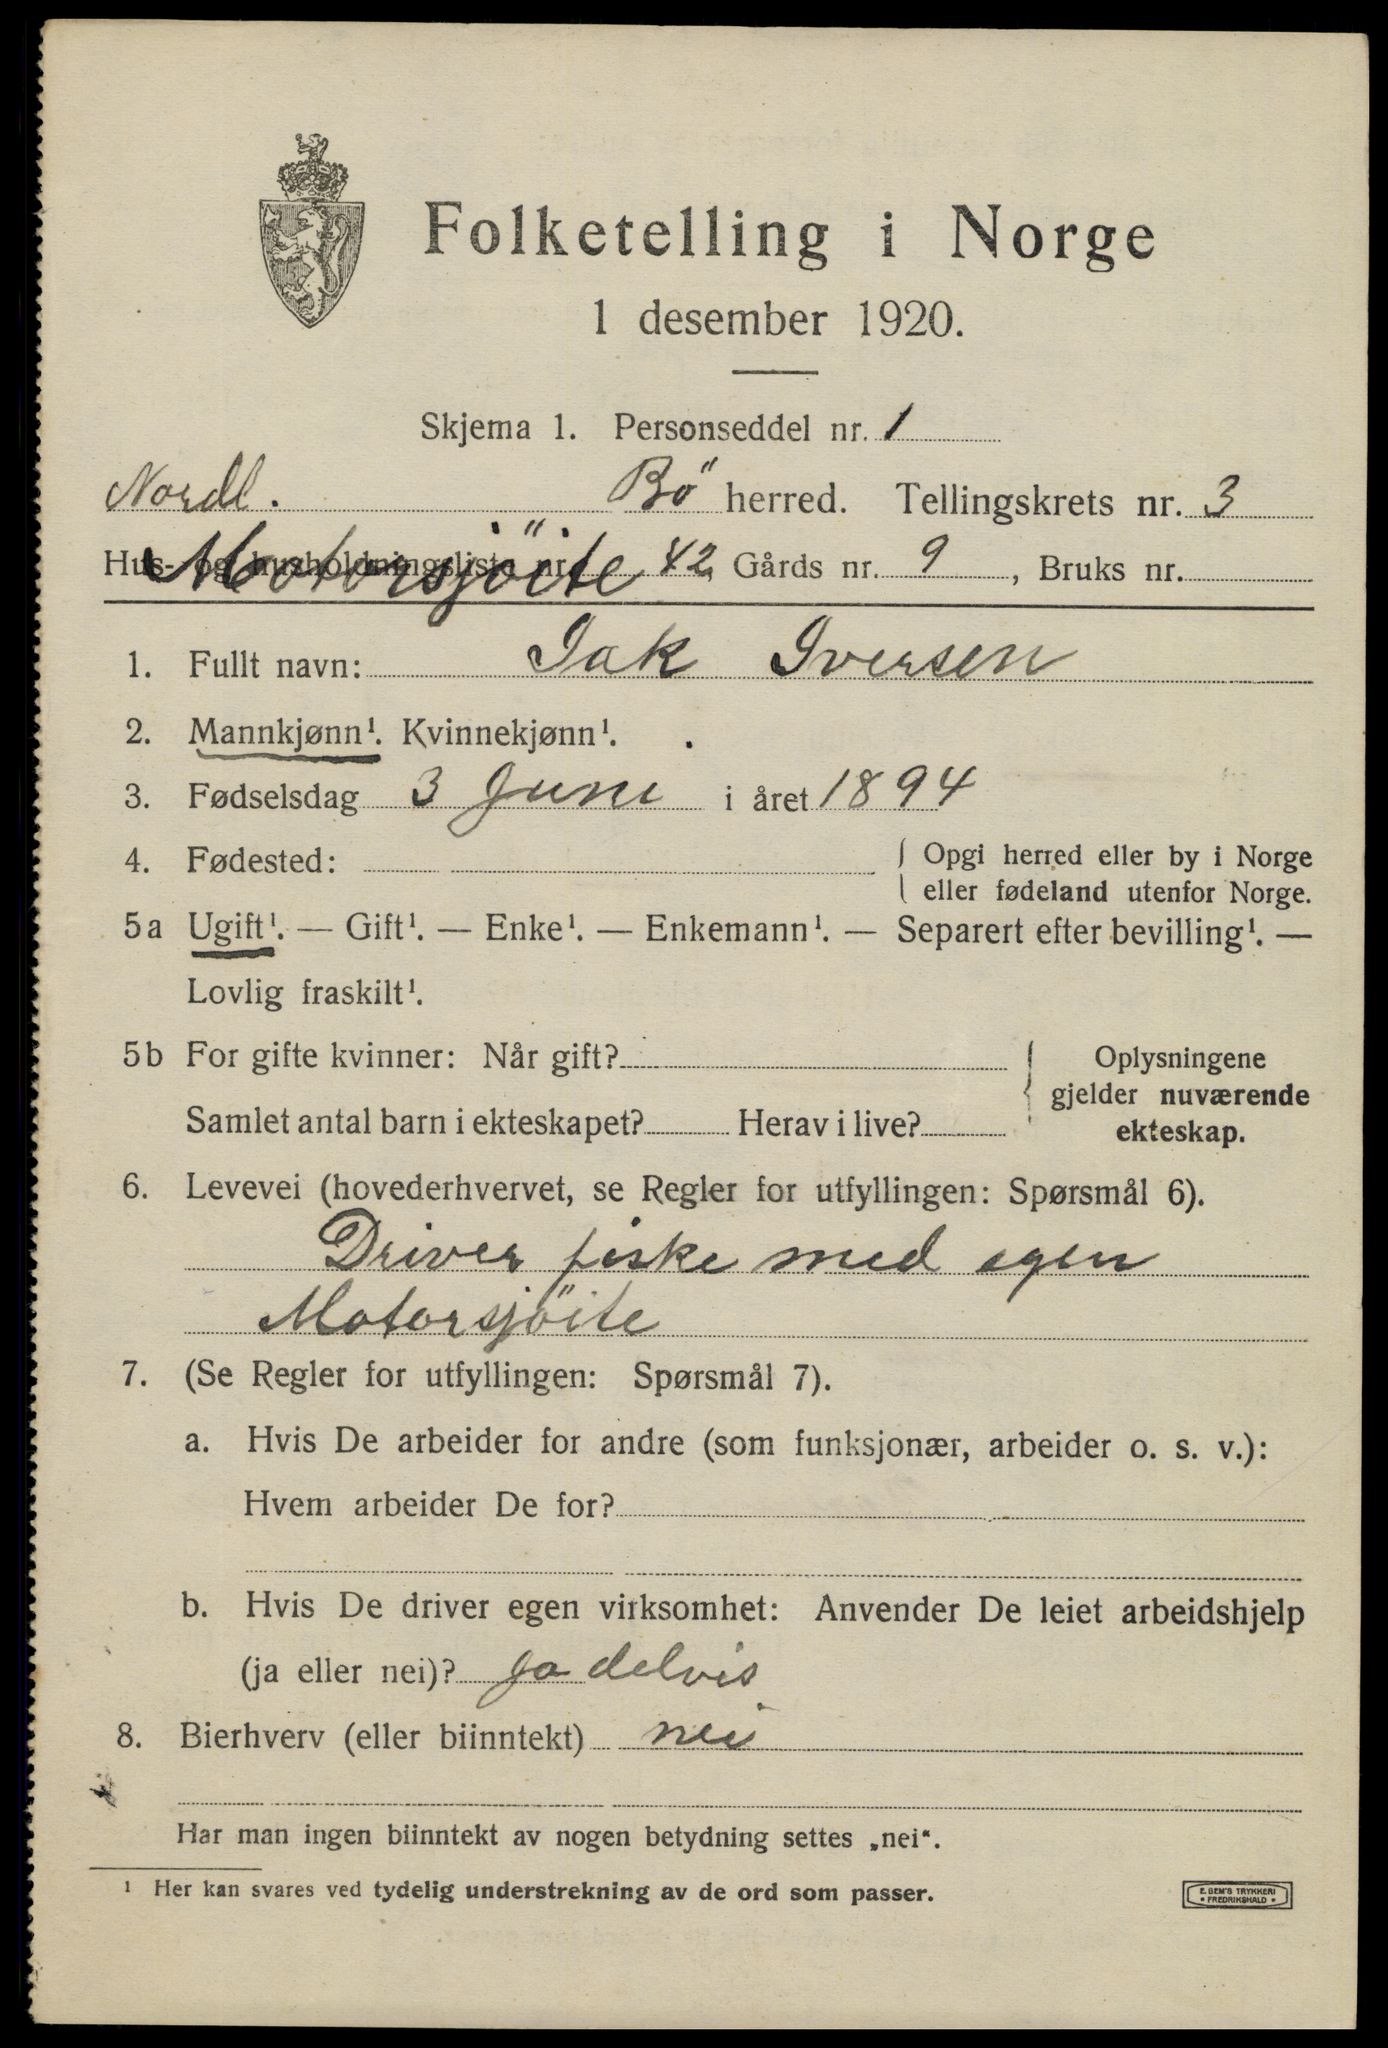 Folketelling i Norge
1 desember 1920.
Skjema 1. Personseddel nr. 1
Nordl. Bö herred. Tellingskrets nr. 3
Hus- og husholdningsliste nr. 42, Gårds nr. 9, Bruks nr.
Motorsjöite
1. Fullt navn: Jak Iversen
2. Mannkjønn¹. Kvinnekjønn¹.
3. Fødselsdag 3 Juni i året 1894
4. Fødested: { Opgi herred eller by i Norge
eller fødeland utenfor Norge.
5a Ugift¹. — Gift¹. — Enke¹. — Enkemann¹. — Separert efter bevilling¹. —
Lovlig fraskilt¹.
5b For gifte kvinner: Når gift? { Oplysningene
gjelder nuværende
Samlet antal barn i ekteskapet? Herav i live? ekteskap.
6. Levevei (hovederhvervet, se Regler for utfyllingen: Spørsmål 6).
Driver fiske med egen
Motorsjöite
7. (Se Regler for utfyllingen: Spørsmål 7).
a. Hvis De arbeider for andre (som funksjonær, arbeider o. s. v.):
Hvem arbeider De for?
b. Hvis De driver egen virksomhet: Anvender De leiet arbeidshjelp
(ja eller nei)? ja delvis
8. Bierhverv (eller biinntekt) nei
Har man ingen biinntekt av nogen betydning settes „nei“.
¹ Her kan svares ved tydelig understrekning av de ord som passer.
E. SEM'S TRYKKERI
* FREDRIKSHALD *